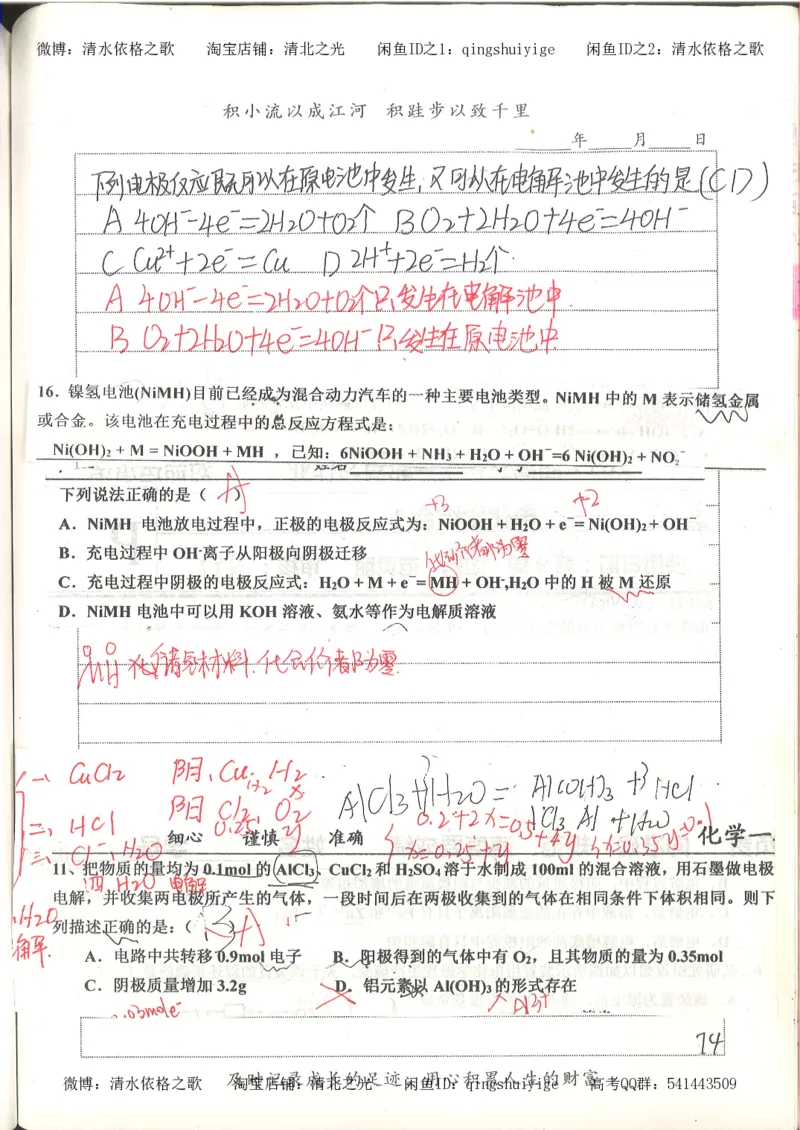 微博：清水依格之歌 淘宝店铺：清北之光 闲鱼ID之1：qingshuiyige 闲鱼ID之2：清水依格之歌
积小流以成江河 积跬步以致千里
年 月 日
下列电极反应既可以在原电池中发生,又可以在电解池中发生的是(CD)
A 4OH⁻-4e⁻=2H2O+O2↑ B O2+2H2O+4e⁻=4OH⁻
C Cu²⁺+2e⁻=Cu D 2H⁺+2e⁻=H2↑
A 4OH⁻-4e⁻=2H2O+O2↑只发生在电解池中.
B O2+2H2O+4e⁻=4OH⁻只发生在原电池中
16．镍氢电池(NiMH)目前已经成为混合动力汽车的一种主要电池类型。NiMH 中的 M 表示储氢金属
或合金。该电池在充电过程中的总反应方程式是：
Ni(OH)₂ + M = NiOOH + MH ，已知：6NiOOH + NH₃ + H₂O + OH⁻=6 Ni(OH)₂ + NO₂⁻
下列说法正确的是（ A ）
+3 +2
A．NiMH 电池放电过程中，正极的电极反应式为：NiOOH + H₂O + e⁻= Ni(OH)₂ + OH⁻
B．充电过程中 OH⁻离子从阳极向阴极迁移
C．充电过程中阴极的电极反应式：H₂O + M + e⁻= MH + OH⁻,H₂O 中的 H 被 M 还原
D．NiMH 电池中可以用 KOH 溶液、氨水等作为电解质溶液
0 0
MH 储氢材料.化合价都为零.
一、CuCl2 阴、Cu、H2
阳 Cl2、O2
AlCl3+3H2O= Al(OH)3+3HCl
二、HCl 0.25
0.2+2x=0.5+4y
三、Cl⁻、H2O
x=0.25+y
细心 谨慎 准确
化学一
11、把物质的量均为 0.1mol 的 AlCl₃、CuCl₂ 和 H₂SO₄ 溶于水制成 100ml 的混合溶液，用石墨做电极
四、H2O 电解
电解，并收集两电极所产生的气体，一段时间后在两极收集到的气体在相同条件下体积相同。则下
列描述正确的是：（ A ）
A．电路中共转移 0.9mol 电子 B．阳极得到的气体中有 O₂，且其物质的量为 0.35mol
C．阴极质量增加 3.2g D．铝元素以 Al(OH)₃ 的形式存在
Al3+
74
及时记录成长的足迹 用心积累人生的财富
微博：清水依格之歌 淘宝店铺：清北之光 闲鱼ID之1：qingshuiyige 高考QQ群：541443509